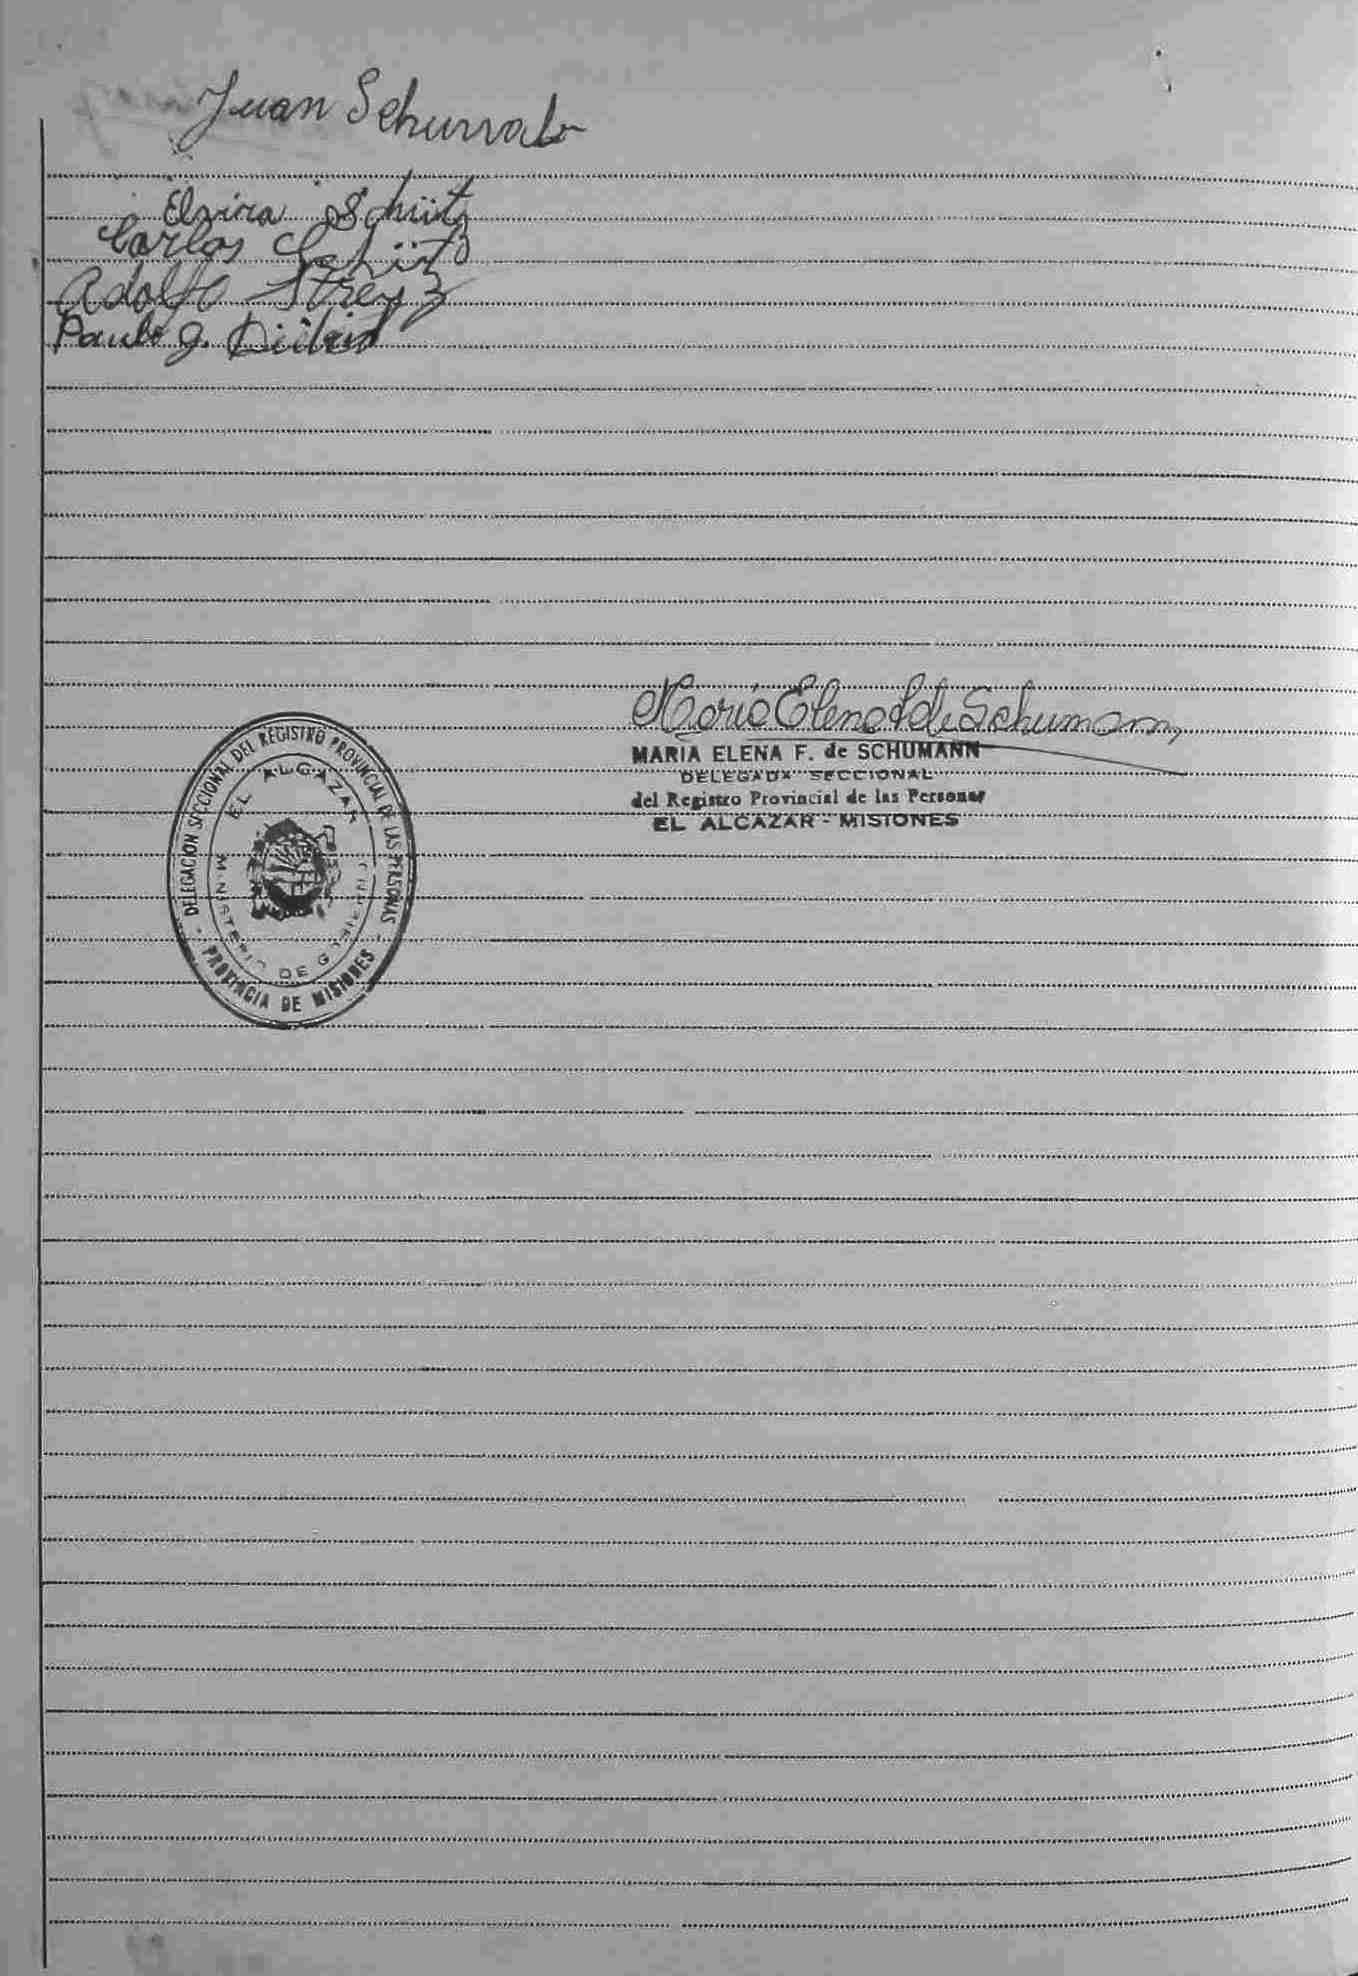 Juan Schurrab
Elvira Schütz
Carlos Schütz
Adolfo Streyz
Paulo J.
Maria Elena F. de Schumann
MARIA ELENA F. de SCHUMANN
DELEGADA SECCIONAL
del Registro Provincial de las Personas
EL ALCAZAR - MISIONES
DELEGACION SECCIONAL DEL REGISTRO PROVINCIAL DE LAS PERSONAS
- PROVINCIA DE MISIONES -
EL ALCAZAR
MINISTERIO DE GOBIERNO